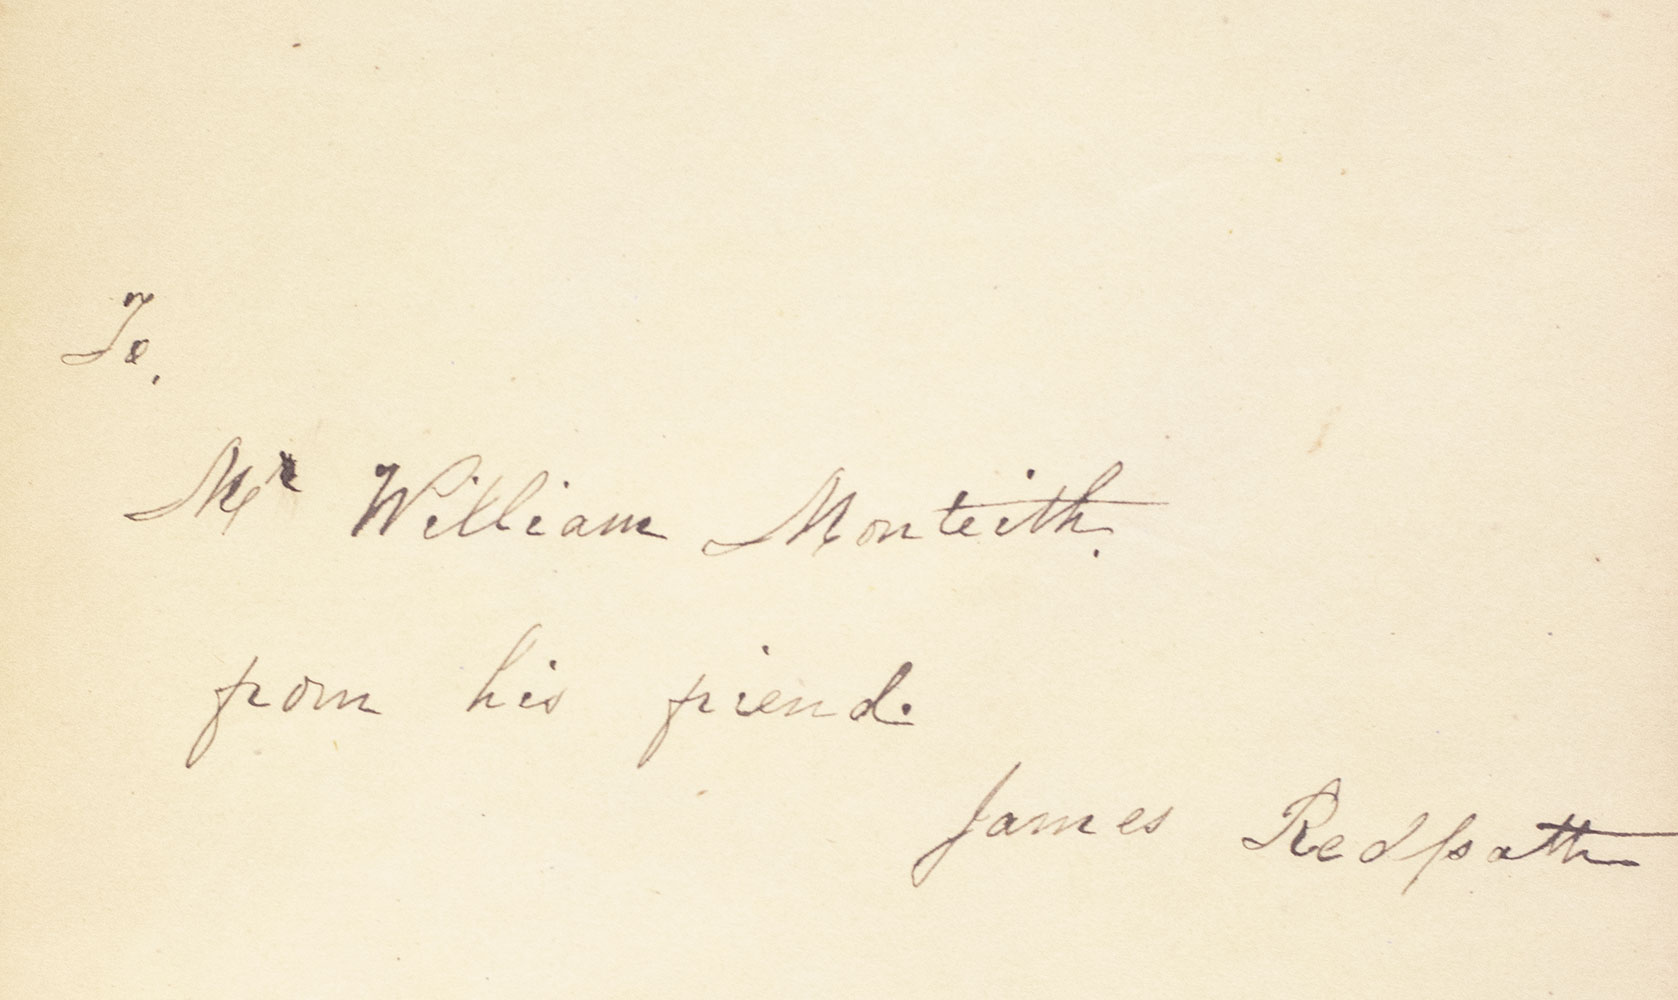 To,
Mr William Monteith.
from his friend.
James Redpath